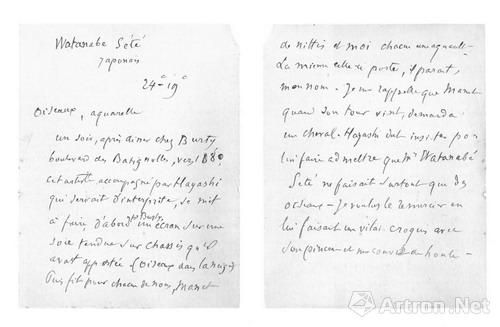 Watanabe Sété
Japonais
24c - 19c
Oiseaux, aquarelle
un soir, après diner chez Burty
boulevard des Batignolles, vers 1880
cet artiste accompagné par Hayashi
qui servait d'interprète, se mit
à faire, d'abord pr Burty, un écran sur une
soie tendue sur chassis qu'il
avait apportée (oiseaux dans la neige)
Puis fit pour chacun de nous, Manet
de Nittis et moi chacun une aquarelle
La mienne celle-ci porte, il parait,
mon nom. Je me rappelle que Manet
quand son tour vint, demanda
un cheval. Hayashi dut insister pour
lui faire admettre que Mr Watanabé
Sété ne faisait surtout que des
oiseaux - Je voulus le remercier en
lui faisant un vilain croquis avec
son pinceau et me couvris de honte -
Artron.Net